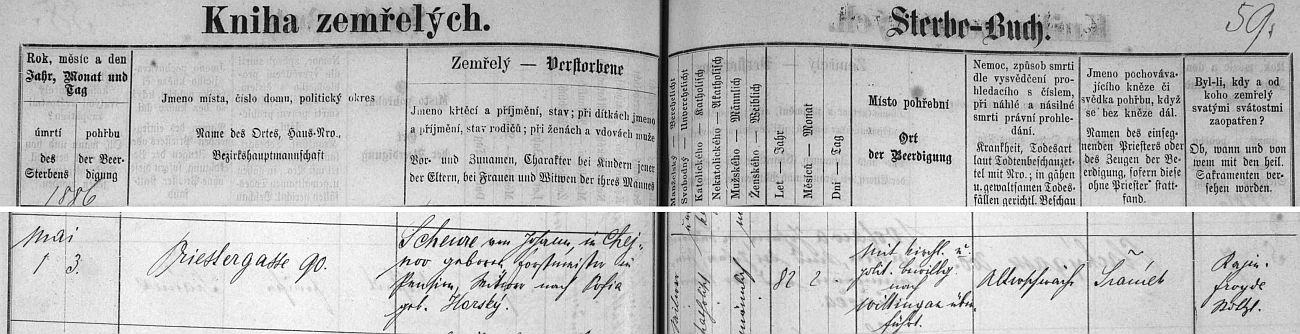 Kniha zemřelých.
Sterbe-Buch.
59.
Rok, měsíc a den
Jahr, Monat und
Tag
úmrtí
des
Sterbens
pohřbu
der Beer-
digung
1886
Jméno místa, číslo domu, politický okres
Name des Ortes, Haus-Nro.,
Bezirkshauptmannschaft
Zemřelý — Verstorbene
Jméno křtěcí a příjmění, stav; při dítkách jméno
a příjmění, stav rodičů; při ženách a vdovách muže
Vor- und Zunamen, Charakter bei Kindern jener
der Eltern, bei Frauen und Witwen der ihres Mannes
Manželský — Verehelicht
Svobodný — Unverehelicht
Katolického — Katholisch
Nekatolického — Akatholisch
Mužského — Männlich
Ženského — Weiblich
Let — Jahr
Měsíců — Monat
Dní — Tag
Místo pohřební
Ort
der Beerdigung
Nemoc, způsob smrti
dle vysvědčení pro-
hledacího s číslem,
při náhlé a násilné
smrti právní prohle-
dání.
Krankheit, Todesart
laut Todtenbeschauzet-
tel mit Nro.; in gähen
u. gewaltsamen Todes-
fällen gerichtl. Beschau
Jméno pochováva-
jícího kněze či
svědka pohřbu, když
se bez kněze dál.
Namen des einseg-
nenden Priesters oder
des Zeugen der Be-
erdigung, sofern diese
ohne Priester statt-
fand.
Byl-li, kdy a od
koho zemřelý
svatými svátostmi
zaopatřen?
Ob, wann und von
wem mit den heil.
Sakramenten ver-
sehen worden.
Mai
1 3.
Priestergasse 90.
Scheure von Johann, in Chej-
nov geboren, Forstmeister in
Pension, Witwer nach Sofia
geb. Horský.
82 2
Mit kirchl. u.
polit. Bewillig
nach
Wittingau über-
führt.
Altersschwäche
Srámek